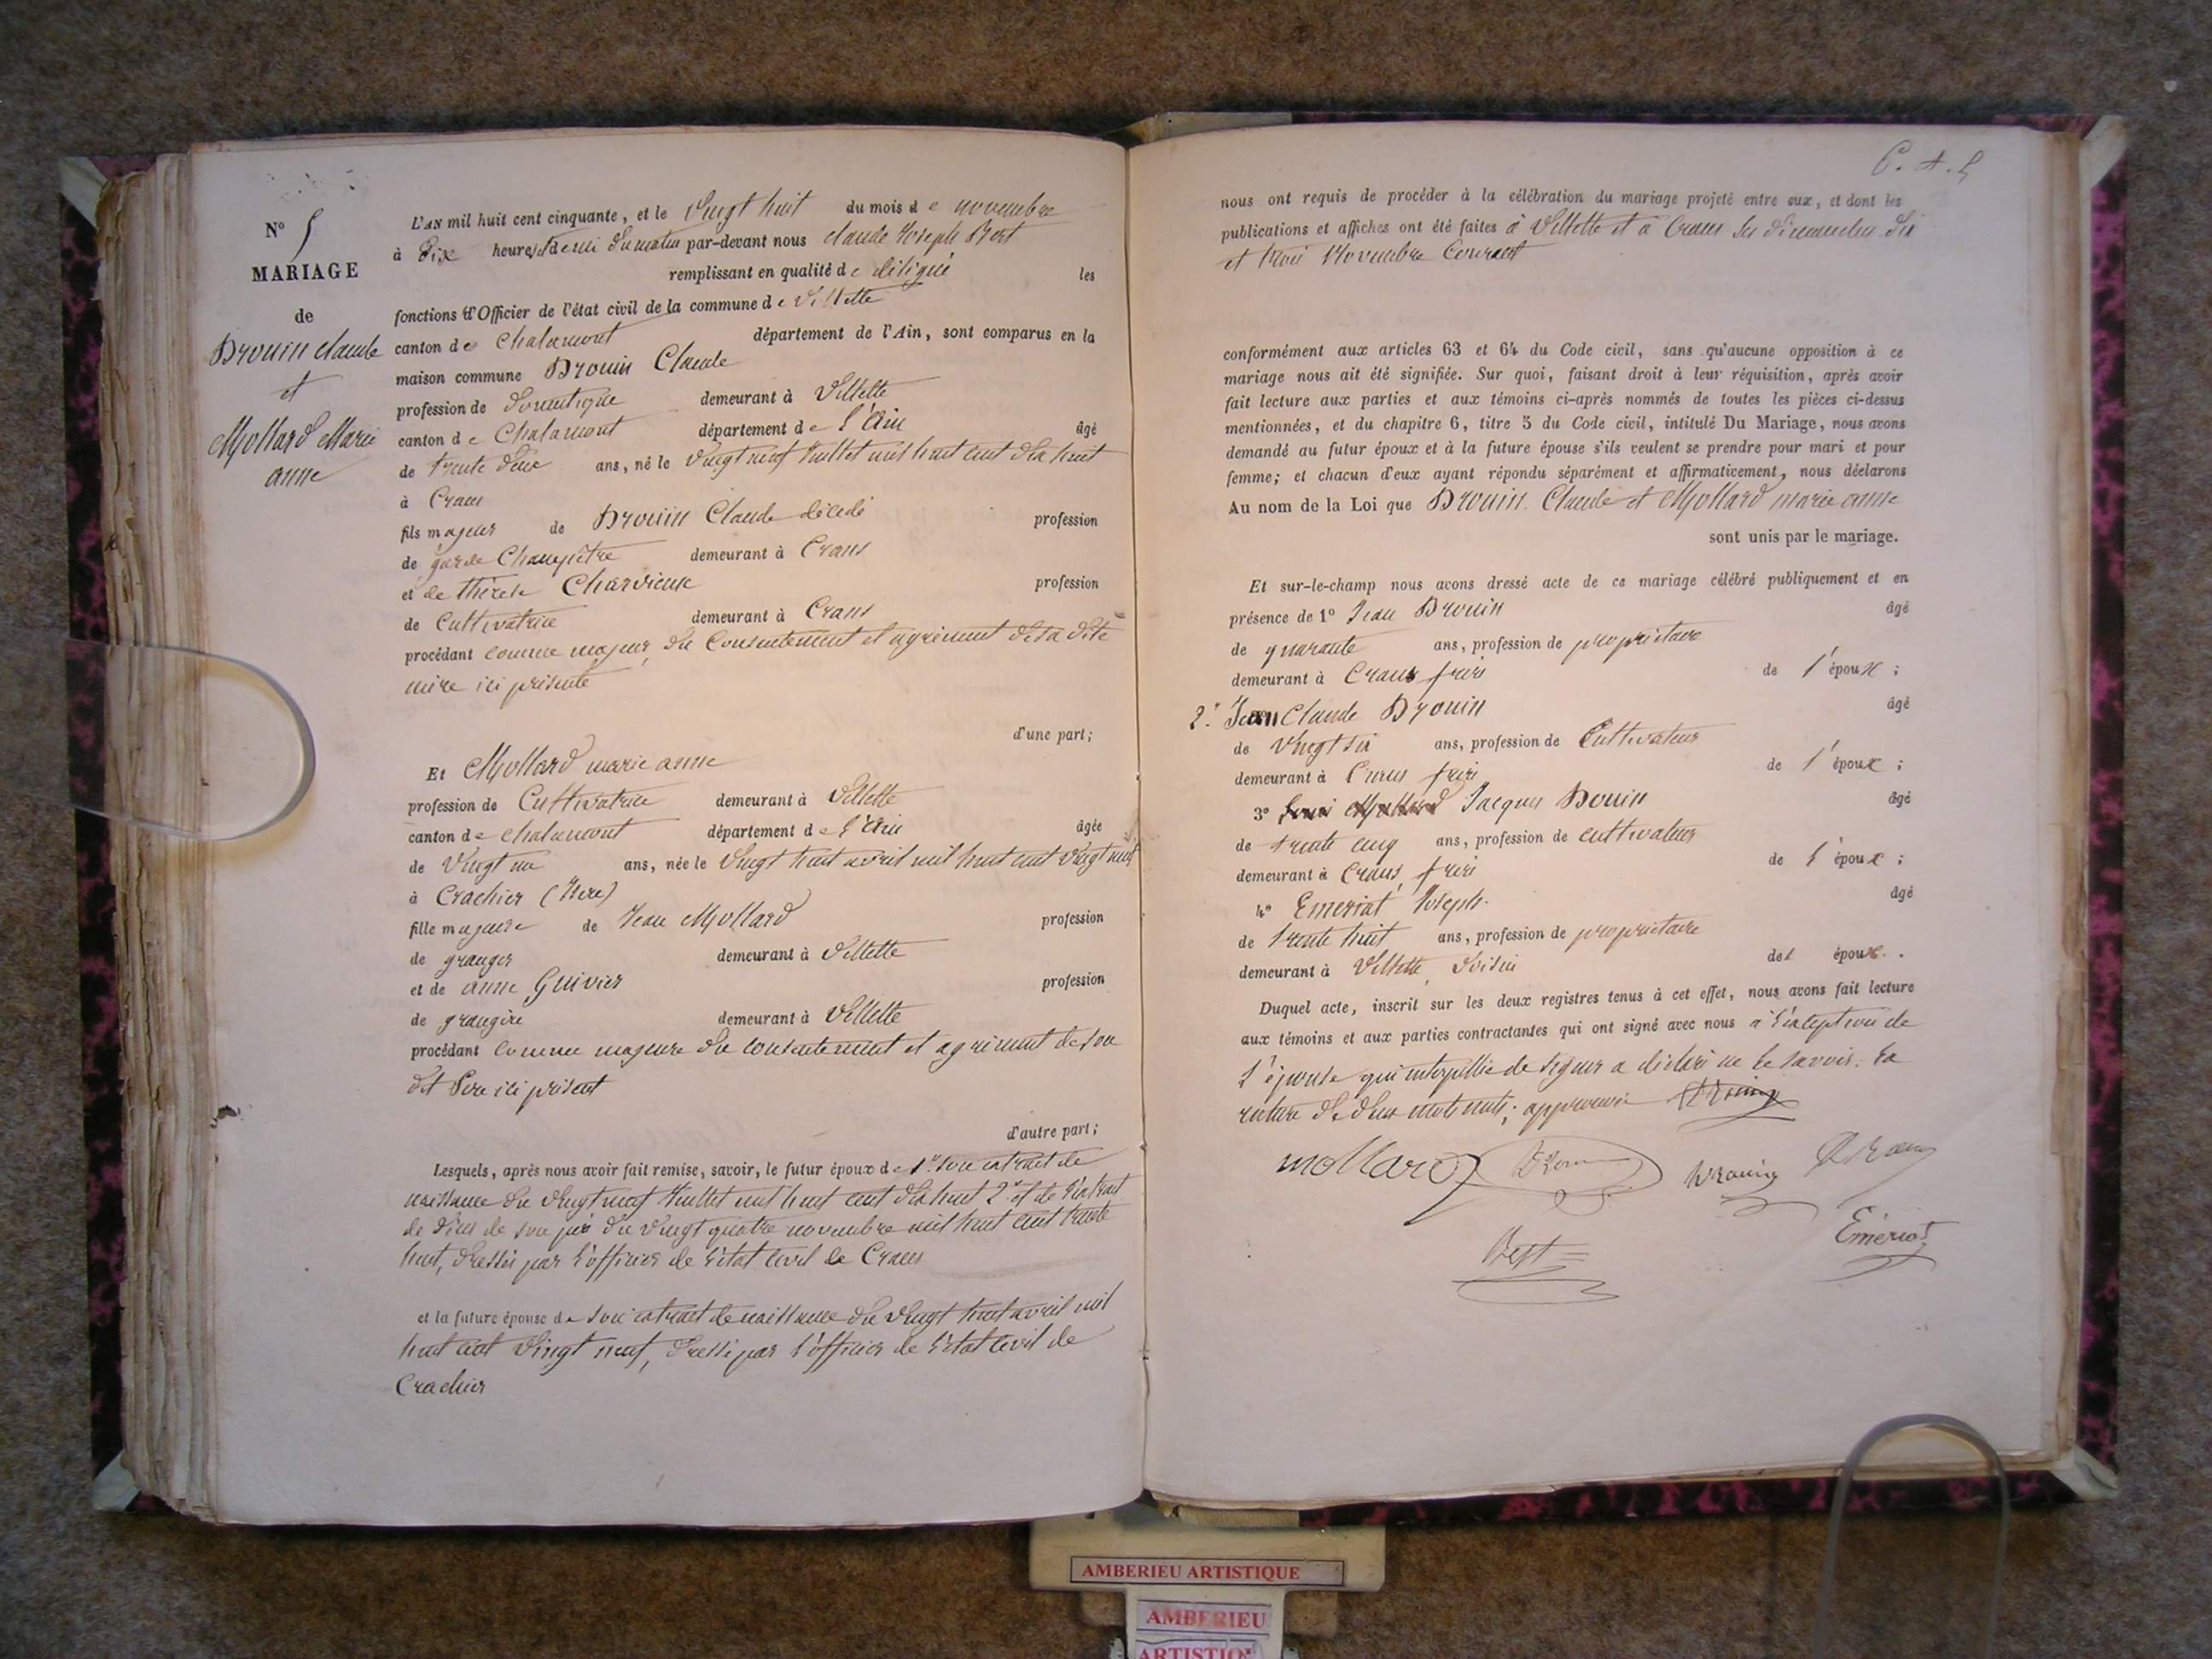 N° 5
MARIAGE
de
Drouin Claude
et
Mollard Marie
anne
L'AN mil huit cent cinquante, et le Vingt huit du mois de novembre
à Dix heures et demi du matin par-devant nous Claude Joseph
remplissant en qualité de délégué les
fonctions d'Officier de l'état civil de la commune de Villette
canton de Chalamont département de l'Ain, sont comparus en la
maison commune Drouin Claude
profession de Domestique demeurant à Villette
canton de Chalamont département de l'Ain âgé
de trente deux ans, né le Vingt neuf Juillet mil huit cent dix huit
à Crans
fils majeur de Drouin Claude décédé profession
de garde Champêtre demeurant à Crans
et de thérèse Charvieux profession
de Cultivatrice demeurant à Crans
procédant comme majeur, du Consentement et agrément de sa dite
mère ici présente
d'une part;
Et Mollard marie anne
profession de Cultivatrice demeurant à Villette
canton de chalamont département de l'Ain âgée
de Vingt un ans, née le Vingt huit avril mil huit cent vingt neuf
à Crachier (Isère)
fille majeure de Jean Mollard profession
de granger demeurant à Villette
et de anne Guivier profession
de grangère demeurant à Villette
procédant comme majeure du consentement et agrément de son
dit Père ici présent
d'autre part;
Lesquels, après nous avoir fait remise, savoir, le futur époux de 1° son extrait de
naissance du Vingt neuf Juillet mil huit cent dix huit 2° et de l'extrait
de décès de son père du Vingt quatre novembre mil huit cent trente
huit, dressés par l'officier de l'état Civil de Crans
et la future épouse de son extrait de naissance du Vingt huit avril mil
huit cent Vingt neuf, dressé par l'officier de l'état Civil de
Crachier
nous ont requis de procéder à la célébration du mariage projeté entre eux, et dont les
publications et affiches ont été faites à Villette et à Crans les dimanches dix
et trois Novembre Courant
conformément aux articles 63 et 64 du Code civil, sans qu'aucune opposition à ce
mariage nous ait été signifiée. Sur quoi, faisant droit à leur réquisition, après avoir
fait lecture aux parties et aux témoins ci-après nommés de toutes les pièces ci-dessus
mentionnées, et du chapitre 6, titre 5 du Code civil, intitulé Du Mariage, nous avons
demandé au futur époux et à la future épouse s'ils veulent se prendre pour mari et pour
femme; et chacun d'eux ayant répondu séparément et affirmativement, nous déclarons
Au nom de la Loi que Drouin Claude et Mollard marie anne
sont unis par le mariage.
Et sur-le-champ nous avons dressé acte de ce mariage célébré publiquement et en
présence de 1° Jean Drouin âgé
de quarante ans, profession de propriétaire
demeurant à Crans frère de l'époux;
2° Jean Claude Drouin âgé
de Vingt six ans, profession de Cultivateur
demeurant à Crans frère de l'époux;
3° Jacques Douin âgé
de trente cinq ans, profession de cultivateur
demeurant à Crans, frère de l'époux;
4° Emeriat Joseph. âgé
de trente huit ans, profession de propriétaire
demeurant à Villette, Voisin de l'époux.
Duquel acte, inscrit sur les deux registres tenus à cet effet, nous avons fait lecture
aux témoins et aux parties contractantes qui ont signé avec nous à l'exception de
l'épouse qui interpellée de signer a déclaré ne le savoir. La
rature de deux mots nuls; approuvée Drouin
mollard Drouin Drouin Drouin
Emeriat
AMBERIEU ARTISTIQUE
AMBERIEU